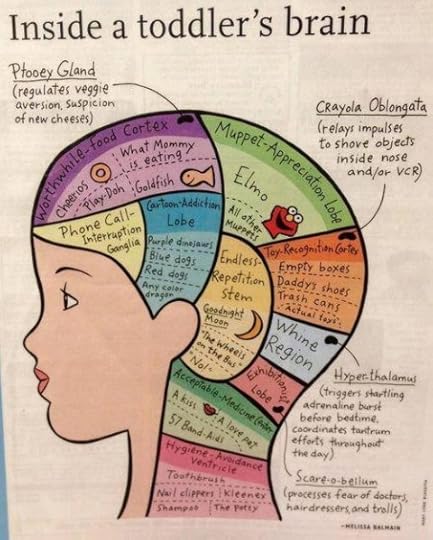 Inside a toddler's brain
Ptooey Gland
(regulates veggie
aversion, suspicion
of new cheeses)
Crayola Oblongata
(relays impulses
to shove objects
inside nose
and/or VCR)
Worthwhile-food Cortex
What Mommy
is eating
Cheerios
Play-Doh
Goldfish
Muppet-Appreciation Lobe
Elmo
All other
Muppets
Phone Call-
Interruption
Ganglia
Cartoon-Addiction
Lobe
Purple dinosaurs
Blue dogs
Red dogs
Any color
dragon
Endless-
Repetition
Stem
Goodnight
Moon
"The Wheels
on the Bus"
"No!"
Toy-Recognition Cortex
Empty boxes
Daddy's shoes
Trash cans
Actual toys
Whine
Region
Exhibitionist
Lobe
Hyper-thalamus
(triggers startling
adrenaline burst
before bedtime,
coordinates tantrum
efforts throughout
the day)
Acceptable-Medicine Center
A kiss
A love pat
57 Band-Aids
Hygiene-Avoidance
Ventricle
Toothbrush
Nail clippers
Kleenex
Shampoo
The potty
Scare-o-bellum
(processes fear of doctors,
hairdressers, and trolls)
-MELISSA BALMAIN